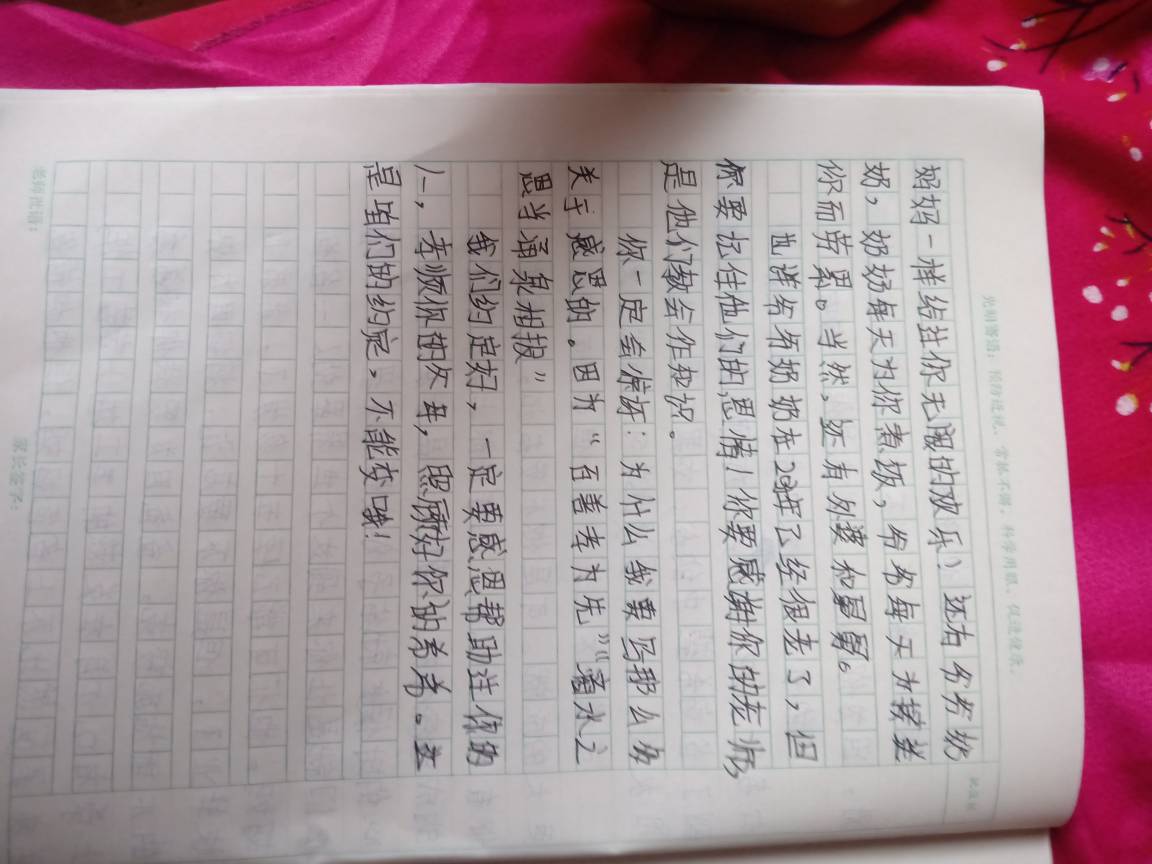 光明寄语：预防近视、常抓不懈，科学用眼、促进健康。
妈妈一样给注你无限的欢乐）还有爷爷奶
奶，奶奶每天为你煮饭，爷爷每天为接送
你而劳累。当然，还有外婆和舅舅。
也许爷爷奶奶在 已经很老了，但
你要记住他们的恩情！你要感谢你的老师
是他们教会你知识。
你一定会惊讶：为什么我要写那么多
关于感恩的。因为“百善孝为先”“滴水之
恩当涌泉相报”
我们约定好，一定要感恩帮助过你的
人，孝顺你的父母，照顾好你的弟弟。这
是咱们的约定，不能变哦！
老师批语：
家长签字：